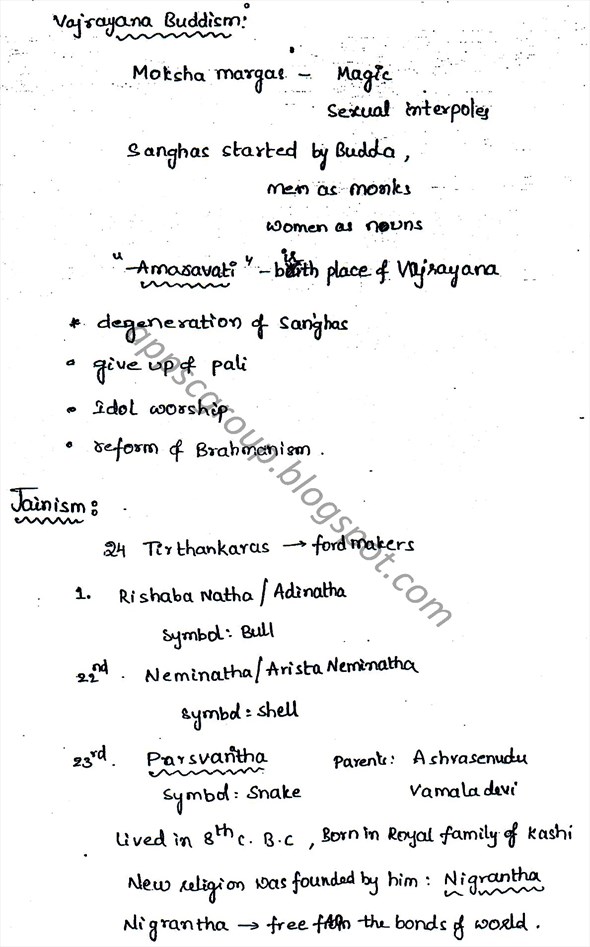 Vajrayana Buddism:
Moksha margas - Magic
Sexual interpoles
Sanghas started by Budda,
men as monks
women as nouns
"Amaravati" - is birth place of Vajrayana
* degeneration of Sanghas
• give up of pali
• Idol worship
• reform of Brahmanism.
Jainism:
24 Tirthankaras → ford makers
1. Rishaba Natha / Adinatha
Symbol: Bull
22nd. Neminatha / Arista Neminatha
Symbol: shell
23rd. Parsvantha Parents: Ashvasenudu
Symbol: Snake Vamaladevi
Lived in 8th C. B.C, Born in Royal family of Kashi
New religion was founded by him: Nigrantha
Nigrantha → free from the bonds of world.
appscgroup.blogspot.com